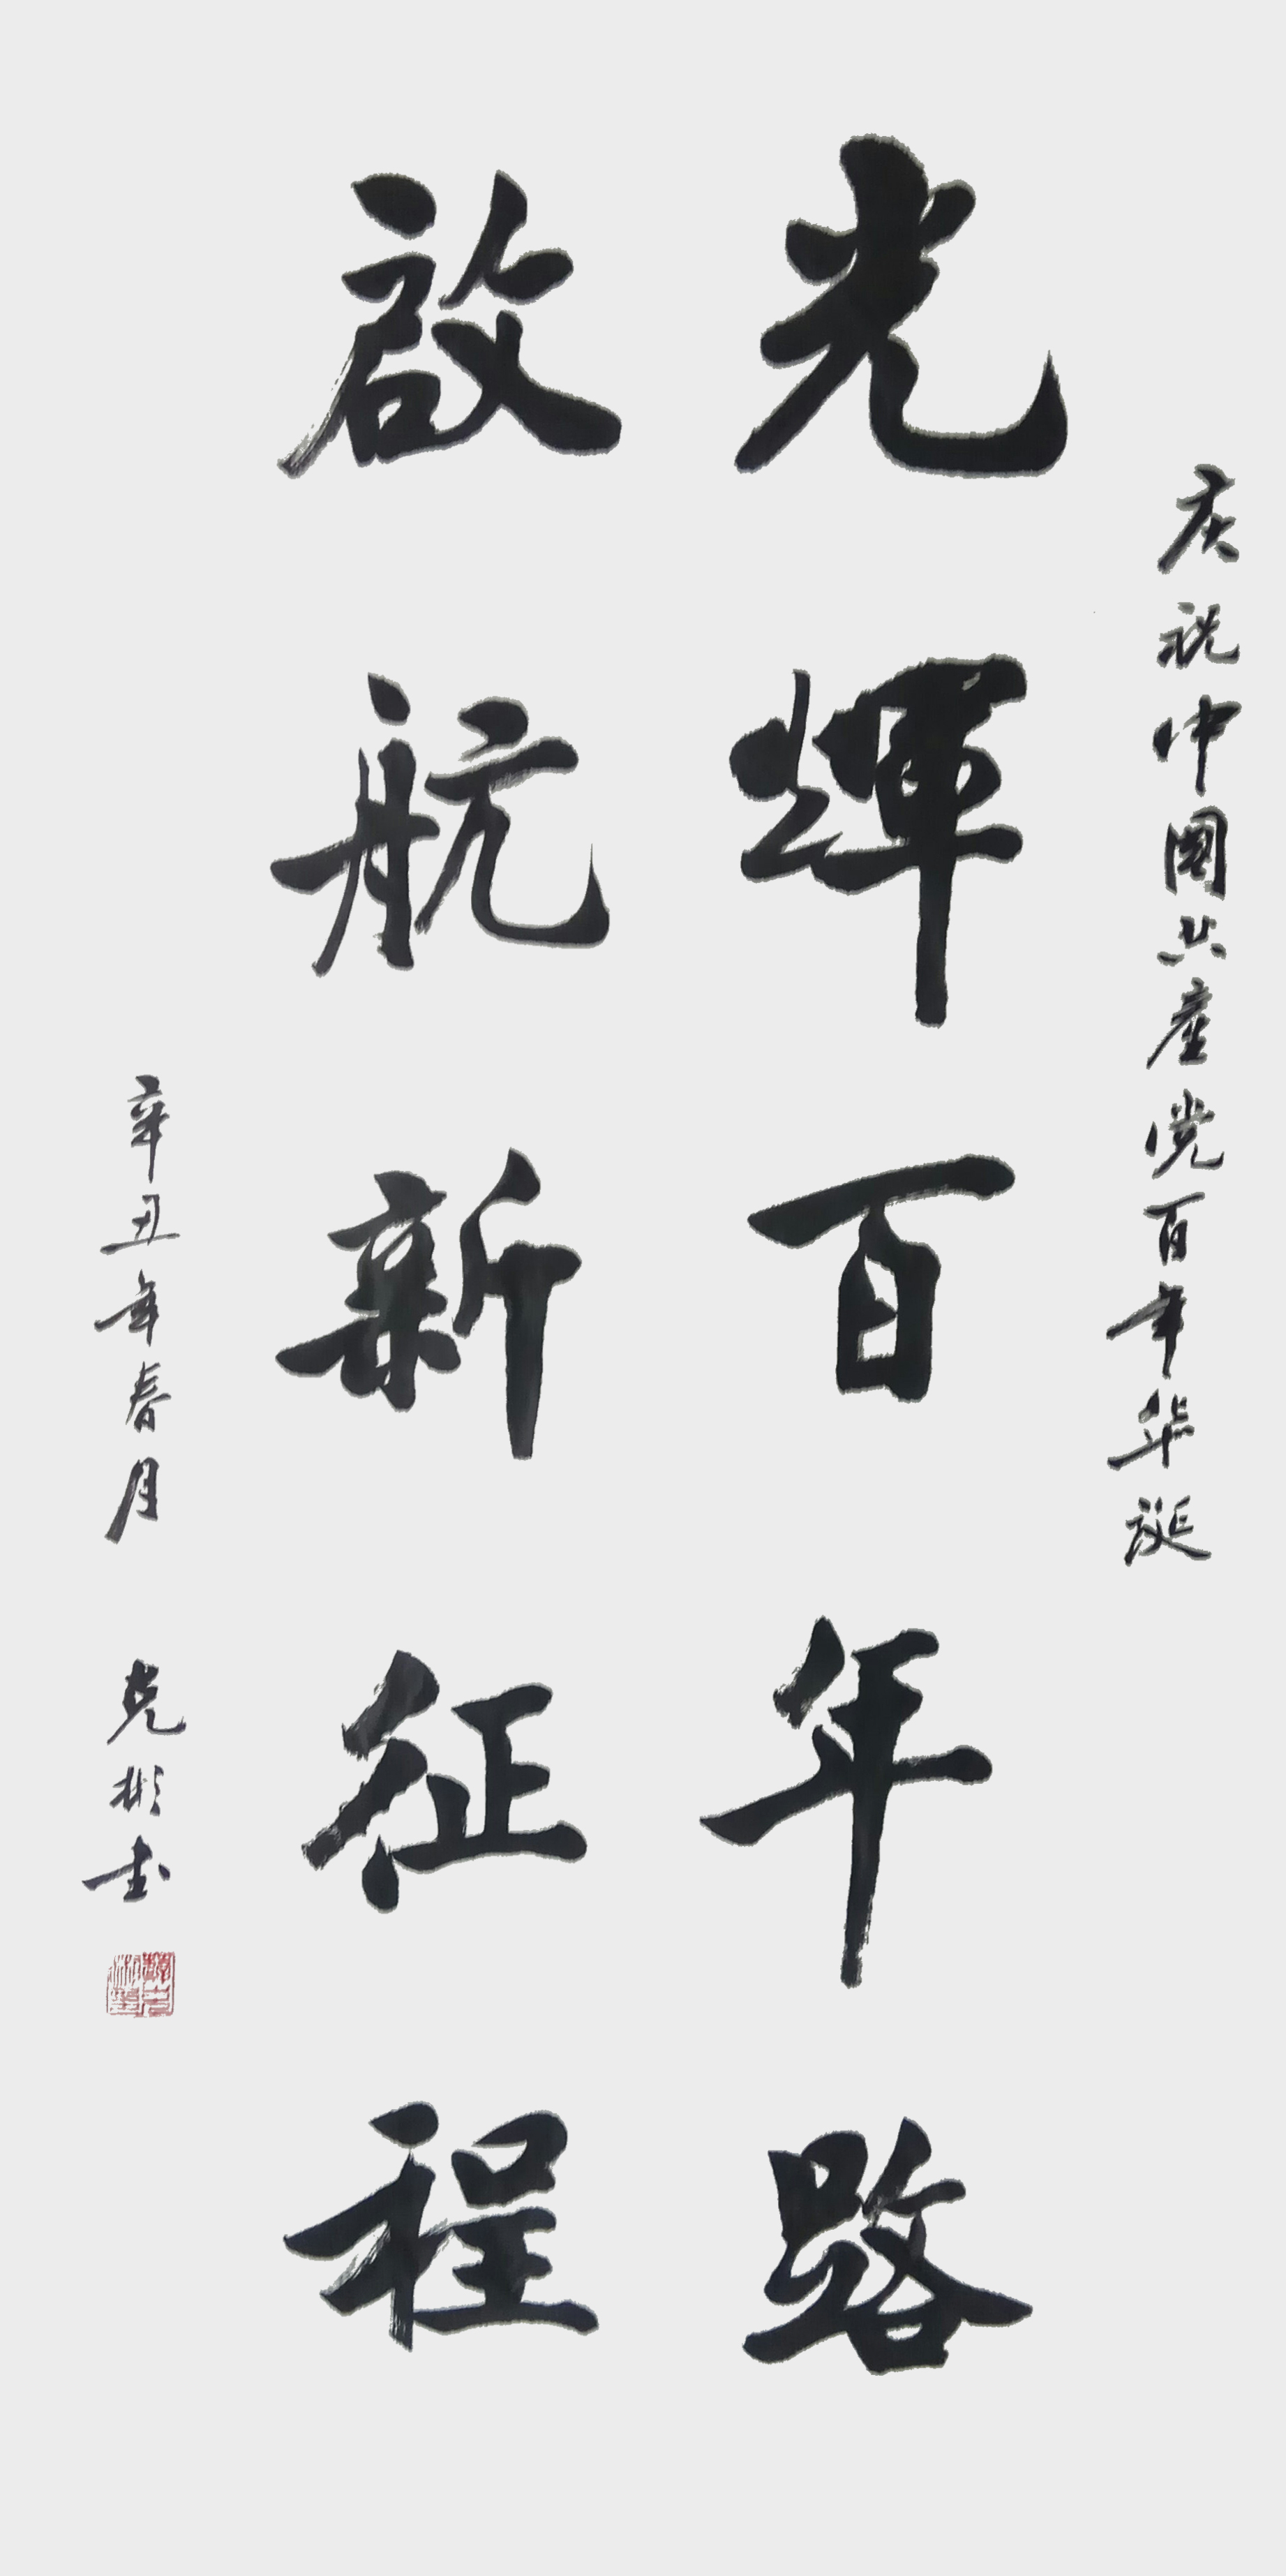 庆祝中國共產党百年华诞
光輝百年路
啟航新征程
辛丑年春月 克彬书